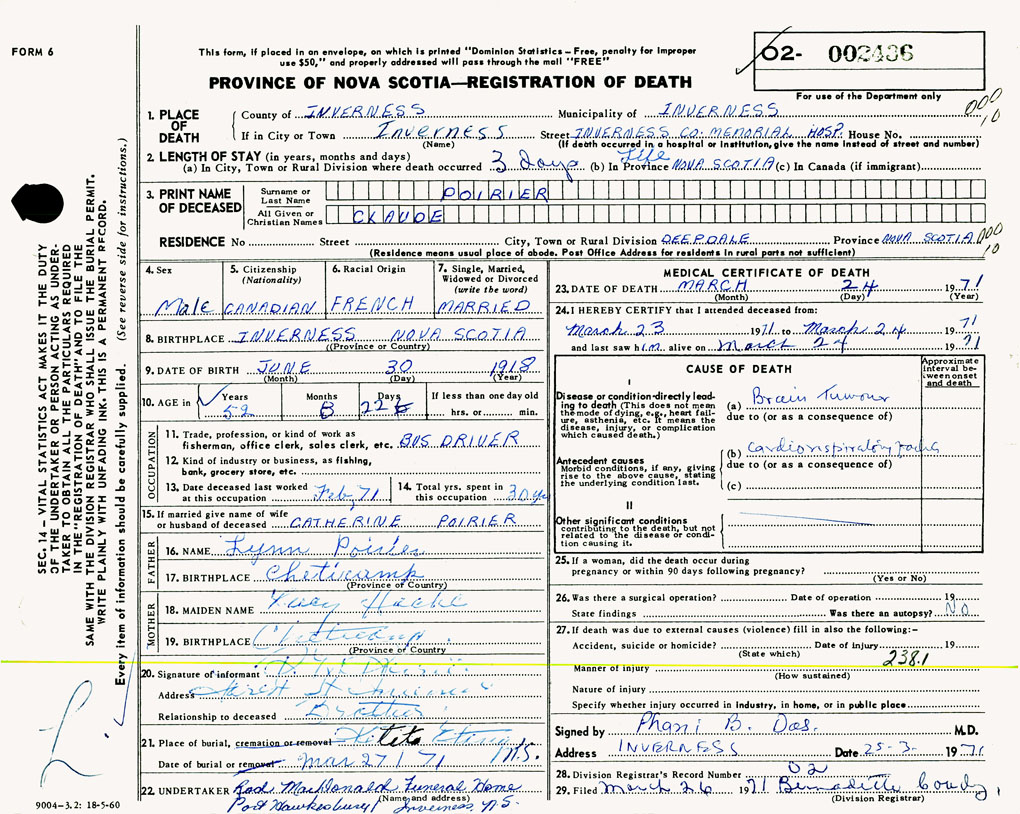 FORM 6
This form, if placed in an envelope, on which is printed "Dominion Statistics – Free, penalty for improper
use $50," and properly addressed will pass through the mail "FREE"
PROVINCE OF NOVA SCOTIA—REGISTRATION OF DEATH
02- 002436
For use of the Department only
000
10
1. PLACE OF DEATH
County of INVERNESS Municipality of INVERNESS
If in City or Town Inverness Street INVERNESS CO. MEMORIAL HOSP. House No.
(Name) (If death occurred in a hospital or institution, give the name instead of street and number)
2. LENGTH OF STAY (in years, months and days)
(a) In City, Town or Rural Division where death occurred 3 days (b) In Province Life NOVA SCOTIA (c) In Canada (if immigrant)
3. PRINT NAME OF DECEASED
Surname or Last Name POIRIER
All Given or Christian Names CLAUDE
RESIDENCE No Street City, Town or Rural Division DEEPDALE Province NOVA SCOTIA 000
10
(Residence means usual place of abode. Post Office Address for residents in rural parts not sufficient)
4. Sex Male
5. Citizenship (Nationality) CANADIAN
6. Racial Origin FRENCH
7. Single, Married, Widowed or Divorced (write the word) MARRIED
8. BIRTHPLACE INVERNESS NOVA SCOTIA
(Province or Country)
9. DATE OF BIRTH JUNE 30 1918
(Month) (Day) (Year)
10. AGE in Years 52 Months 8 Days 22 If less than one day old hrs. or min.
OCCUPATION
11. Trade, profession, or kind of work as
fisherman, office clerk, sales clerk, etc. BUS DRIVER
12. Kind of industry or business, as fishing,
bank, grocery store, etc.
13. Date deceased last worked
at this occupation Feb/71
14. Total yrs. spent in
this occupation 30 yrs
15. If married give name of wife
or husband of deceased CATHERINE POIRIER
FATHER
16. NAME Poirier
17. BIRTHPLACE Cheticamp
(Province of Country)
MOTHER
18. MAIDEN NAME
19. BIRTHPLACE Cheticamp
(Province of Country
20. Signature of informant
Address
Relationship to deceased Brother
21. Place of burial, cremation or removal N.S.
Date of burial or removal Mar 27/71
22. UNDERTAKER Rod. MacDonald Funeral Home
(Name and address)
Port Hawkesbury/ Inverness, N.S.
MEDICAL CERTIFICATE OF DEATH
23. DATE OF DEATH MARCH 24 1971
(Month) (Day) (Year)
24. I HEREBY CERTIFY that I attended deceased from:
March 23 1971 to March 24 1971
and last saw him alive on March 24 1971
CAUSE OF DEATH
Approximate interval between onset and death
I
Disease or condition directly leading to death (This does not mean the mode of dying, e.g., heart failure, asthenia, etc. It means the disease, injury, or complication which caused death.)
(a) Brain Tumour
due to (or as a consequence of)
Antecedent causes
Morbid conditions, if any, giving rise to the above cause, stating the underlying condition last.
(b) Cardiorespiratory
due to (or as a consequence of)
(c)
II
Other significant conditions
contributing to the death, but not related to the disease or condition causing it.
25. If a woman, did the death occur during
pregnancy or within 90 days following pregnancy?
(Yes or No)
26. Was there a surgical operation? Date of operation 19
State findings Was there an autopsy? NO
27. If death was due to external causes (violence) fill in also the following:–
Accident, suicide or homicide? Date of injury 19
(State which) 238.1
Manner of injury
(How sustained)
Nature of injury
Specify whether injury occurred in industry, in home, or in public place
Signed by Phani B. Das. M.D.
Address INVERNESS Date 25-3- 1971
28. Division Registrar's Record Number 02
29. Filed March 26 1971 Bernadette Coady
(Division Registrar)
SEC. 14 – VITAL STATISTICS ACT MAKES IT THE DUTY
OF THE UNDERTAKER OR PERSON ACTING AS UNDER-
TAKER TO OBTAIN ALL THE PARTICULARS REQUIRED
IN THE "REGISTRATION OF DEATH" AND TO FILE THE
SAME WITH THE DIVISION REGISTRAR WHO SHALL ISSUE THE BURIAL PERMIT.
WRITE PLAINLY WITH UNFADING INK. THIS IS A PERMANENT RECORD.
Every item of information should be carefully supplied. (See reverse side for instructions.)
9004–3.2: 18-5-60